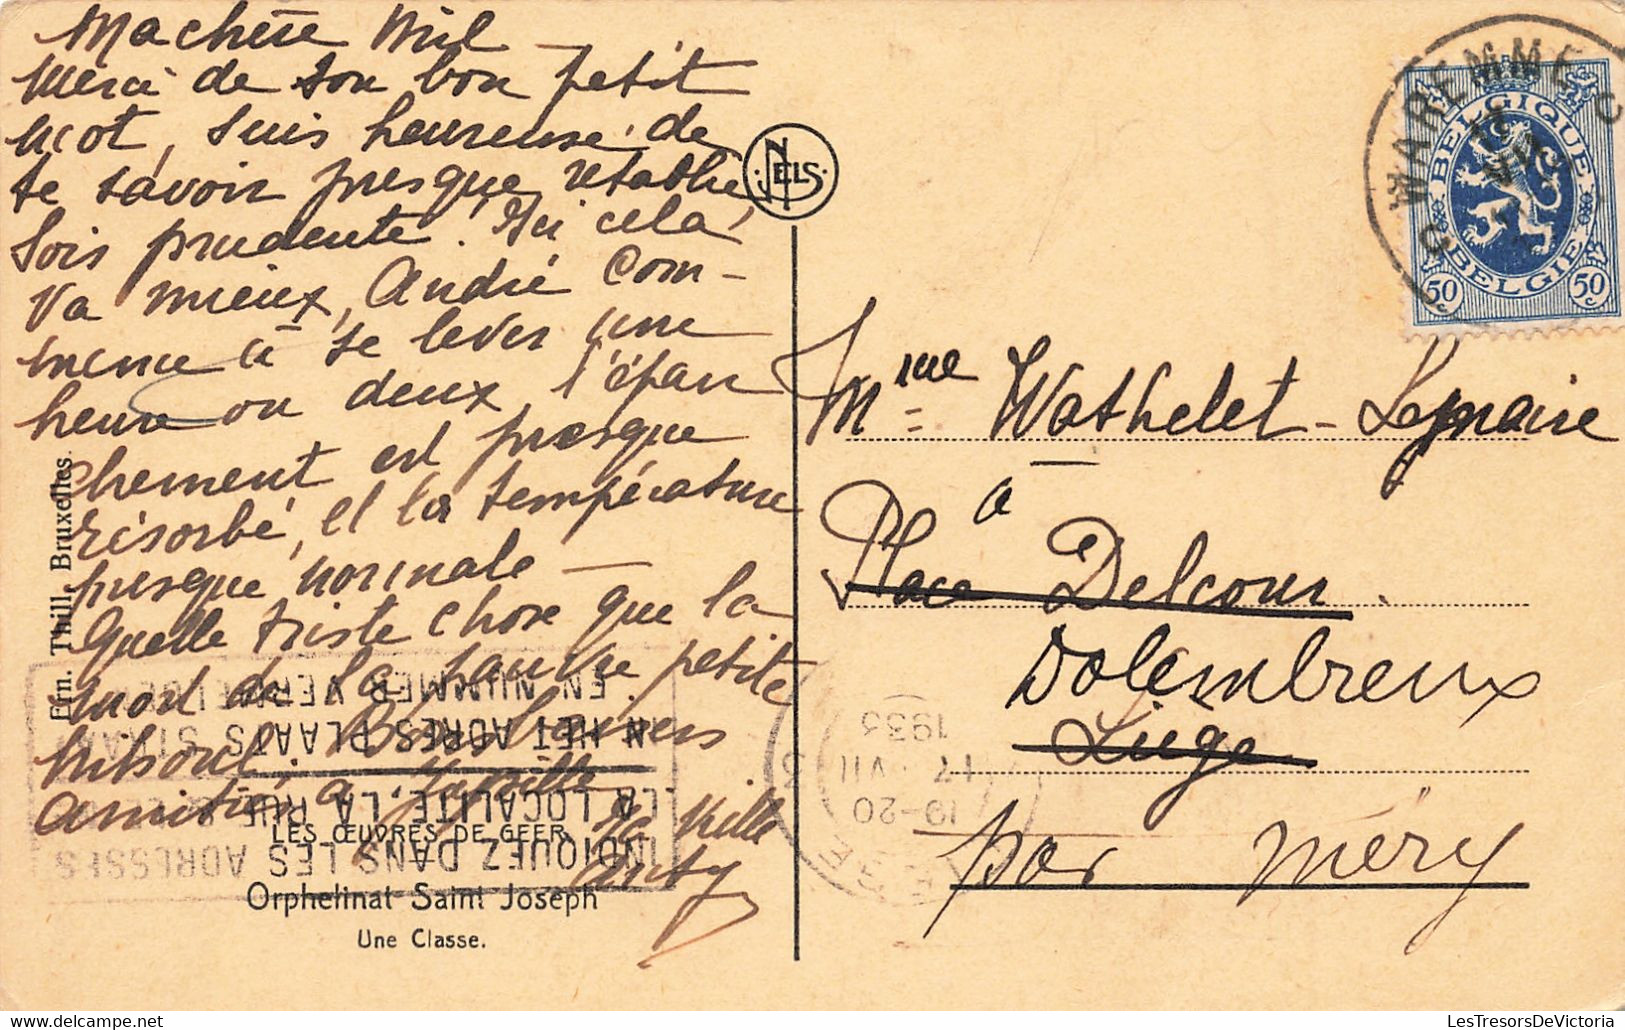 Ma chère Mil —
Merci de ton bon petit
mot, suis heureuse de
te savoir presque rétablie,
sois prudente. Ici cela
va mieux, André com-
mence à se lever une
heure ou deux, l'épan
chement est presque
résorbé, et la température
presque normale —
Quelle triste chose que la
mort de la pauvre petite
Amitiés à
Ern. Thill, Bruxelles.
LES ŒUVRES DE GEER
Orphelinat Saint Joseph
Une Classe.
NELS
WAREMME
BELGIQUE
BELGIE
50c
50c
Mme Wathelet-Lemaire
à
Place Delcour
Dolembreux
Liége
par Méry
INDIQUEZ DANS LES ADRESSES
LA LOCALITE, LA RUE
IN HET ADRES PLAATS STRAAT
EN NUMMER VERMELDEN
19-20
17 VII
1933
LesTresorsDeVictoria.com
LesTresorsDeVictoria